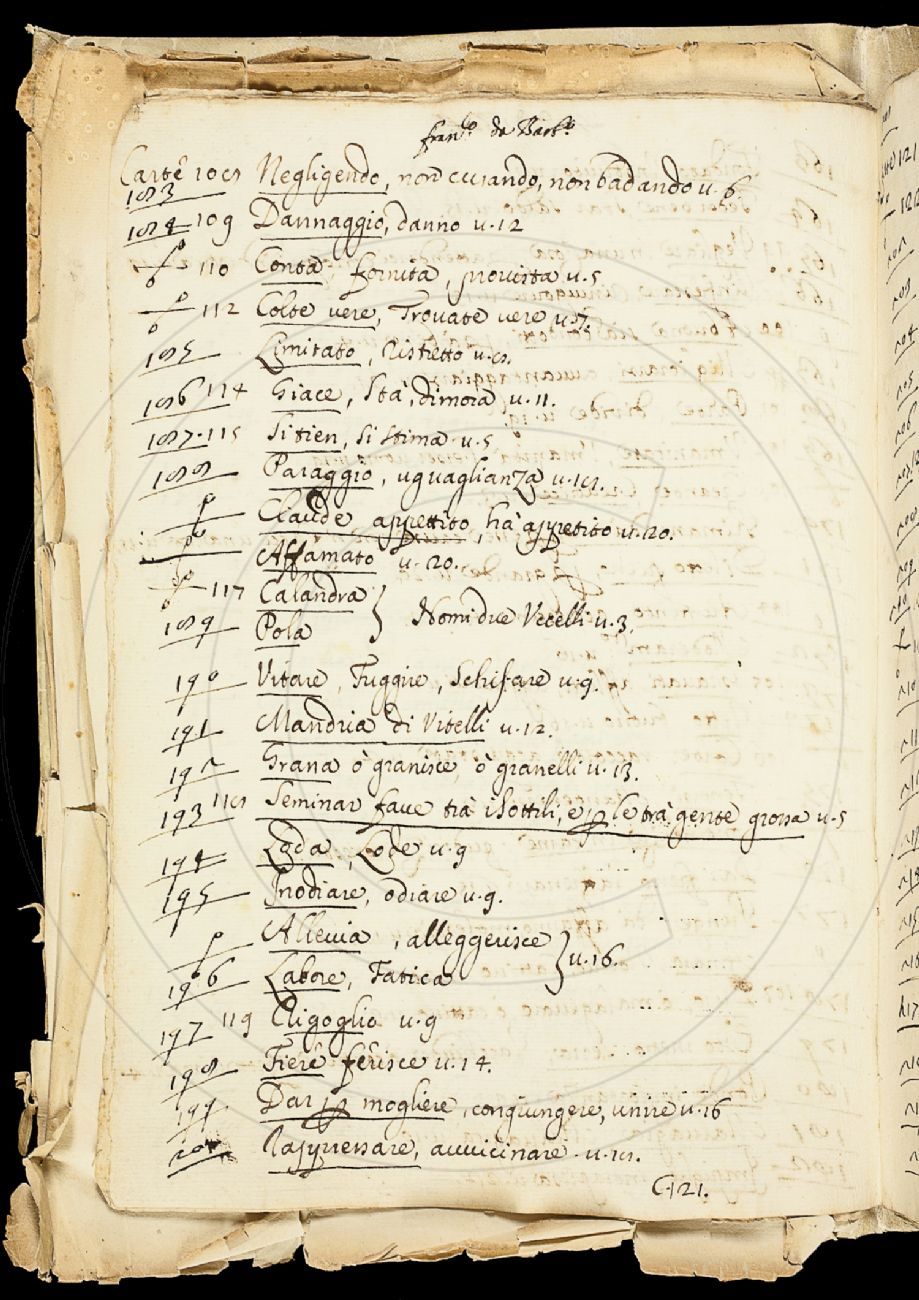 Franc.o da Barb.o
Carte 108 Negligendo, non curando, non badando v. 6.
183
184 109 Dannaggio, danno v. 12
110 Conta, fornita, provista v. 5
112 Colte vere, Trovate vere v. 7.
185 Limitato, Ristretto v. 8.
186 114 Giace, Stà, dimora v. 11.
187. 115 Si tien, si stima v. 5
188 Paraggio, uguaglianza v. 18.
Claude appettito, hà appetito v. 20.
Affamato v. 20.
117 Calandra
189 Pola } Nomi due Vccelli v. 3.
190 Vitare, Fuggire, Schifare v. 9.
191 Mandria di Vitelli v. 12.
192 Grana ò granisce, ò granelli v. 13.
193 118 Seminar fave trà i Sottili, e ꝑle trà gente grossa v. 5
194 Loda, Lode v. 9
195 Inodiare, odiare v. 9.
Allevia, alleggerisce
196 Labore, Fatica } v. 16.
197 119 Rigoglio v. 9
198 Fiere ferisce v. 14.
199 Dar ꝑ mogliere, congiungere, unire v. 16
200 Rappressare, avvicinare v. 18.
C. 121.